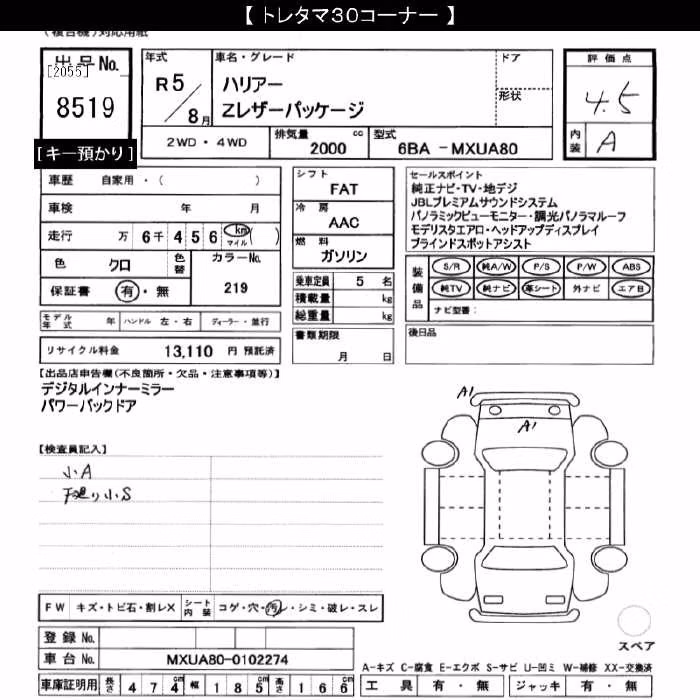 【 トレタマ30コーナー 】
(複合機)対応用紙
出品No.
[2055]
8519
[キー預かり]
年式
R 5/8月
車名・グレード
ハリアー
Zレザーパッケージ
ドア
形状
評価点
4.5
内装 A
2WD・4WD
排気量 cc
2000
型式
6BA －MXUA80
車歴 自家用・( )
車検 年 月
走行 万 6千 4 5 6 km マイル ( )
色 クロ 色替
カラーNo.
219
保証書 有・無
シフト
FAT
冷房
AAC
燃料
ガソリン
乗車定員 5 名
積載量 kg
総重量 kg
セールスポイント
純正ナビ・TV・地デジ
JBLプレミアムサウンドシステム
パノラミックビューモニター・調光パノラマルーフ
モデリスタエアロ・ヘッドアップディスプレイ
ブラインドスポットアシスト
装備品
S/R 純A/W P/S P/W ABS
純TV 純ナビ 革シート 外ナビ エアB
ナビ型番:
モデル年式 年 ハンドル 左・右 ディーラー・並行
リサイクル料金 13,110 円 預託済
書類期限
月 日
後日品
【出品店申告欄(不良箇所・欠品・注意事項等)】
デジタルインナーミラー
パワーバックドア
【検査員記入】
小A
下廻り小S
A1
A1
FW キズ・トビ石・割レX シート内装 コゲ・穴・汚レ・シミ・破レ・スレ
登録No.
車台No. MXUA80-0102274
スペア
A-キズ C-腐食 E-エクボ S-サビ U-凹ミ W-補修 XX-交換済
車庫証明用 長さ 4 7 4 cm 幅 1 8 5 cm 高さ 1 6 6 cm
工具 有・無 ジャッキ 有・無